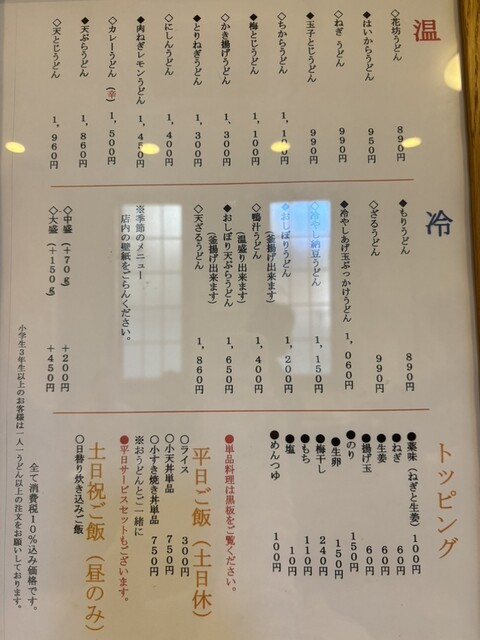 温
◇花坊うどん　890円
◆はいからうどん　950円
◇ねぎ うどん　990円
◆玉子とじうどん　990円
◇ちからうどん　1,100円
◆梅とじうどん　1,100円
◇かき揚げうどん　1,300円
◆とりねぎうどん　1,300円
◇にしんうどん　1,400円
◆肉ねぎレモンうどん　1,450円
◇カレーうどん (辛)　1,500円
◆天ぷらうどん　1,860円
◇天とじうどん　1,960円
冷
◆もりうどん　890円
◇ざるうどん　990円
◆冷やしあげ玉ぶっかけうどん　1,060円
◇冷やし納豆うどん　1,150円
◆おしぼりうどん　1,200円
(釜揚げ出来ます)
◇鴨汁うどん　1,400円
(温盛り出来ます)
◆おしぼり天ぷらうどん　1,650円
(釜揚げ出来ます)
◇天ざるうどん　1,860円
※季節のメニュー
店内の壁紙をごらんください。
◇中盛 (+70g)　+200円
◇大盛 (+150g)　+450円
トッピング
●薬味(ねぎと生姜)　100円
●ねぎ　60円
●生姜　60円
●揚げ玉　60円
●のり　150円
●生卵　150円
●梅干し　240円
●もち　110円
●塩　110円
●めんつゆ　100円
●単品料理は黒板をご覧ください。
平日ご飯(土日休)
○ライス　300円
○小天丼単品　750円
○小すき焼き丼単品　750円
※おうどんとご一緒に
●平日サービスセットもございます。
土日祝ご飯(昼のみ)
○日替り炊き込みご飯
全て消費税10%込み価格です。
小学生3年生以上のお客様は一人一うどん以上の注文をお願いしております。